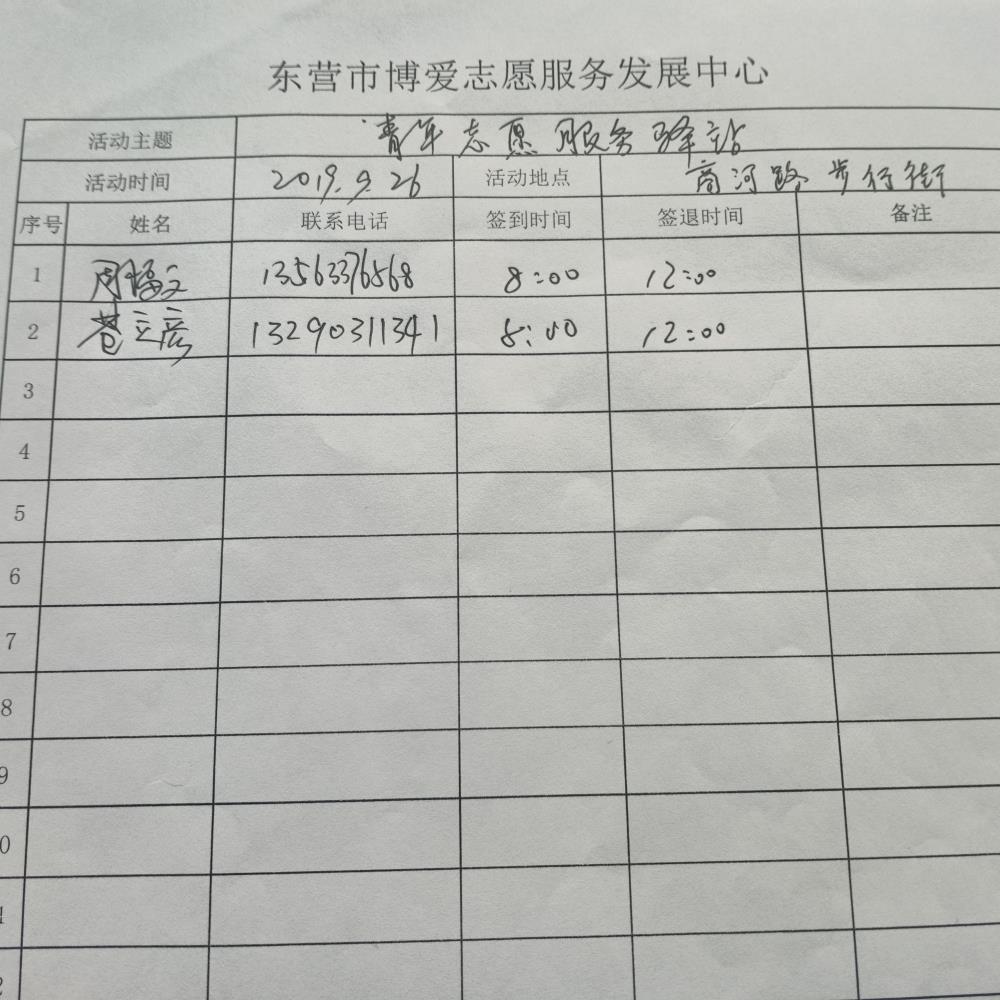 东营市博爱志愿服务发展中心
活动主题 青年志愿服务驿站
活动时间 2019.9.26 活动地点 商河路步行街
序号 姓名 联系电话 签到时间 签退时间 备注
1 周福文 13563376568 8:00 12:00
2 苍立彦 13290311341 8:00 12:00
3
4
5
6
7
8
9
0
1
2